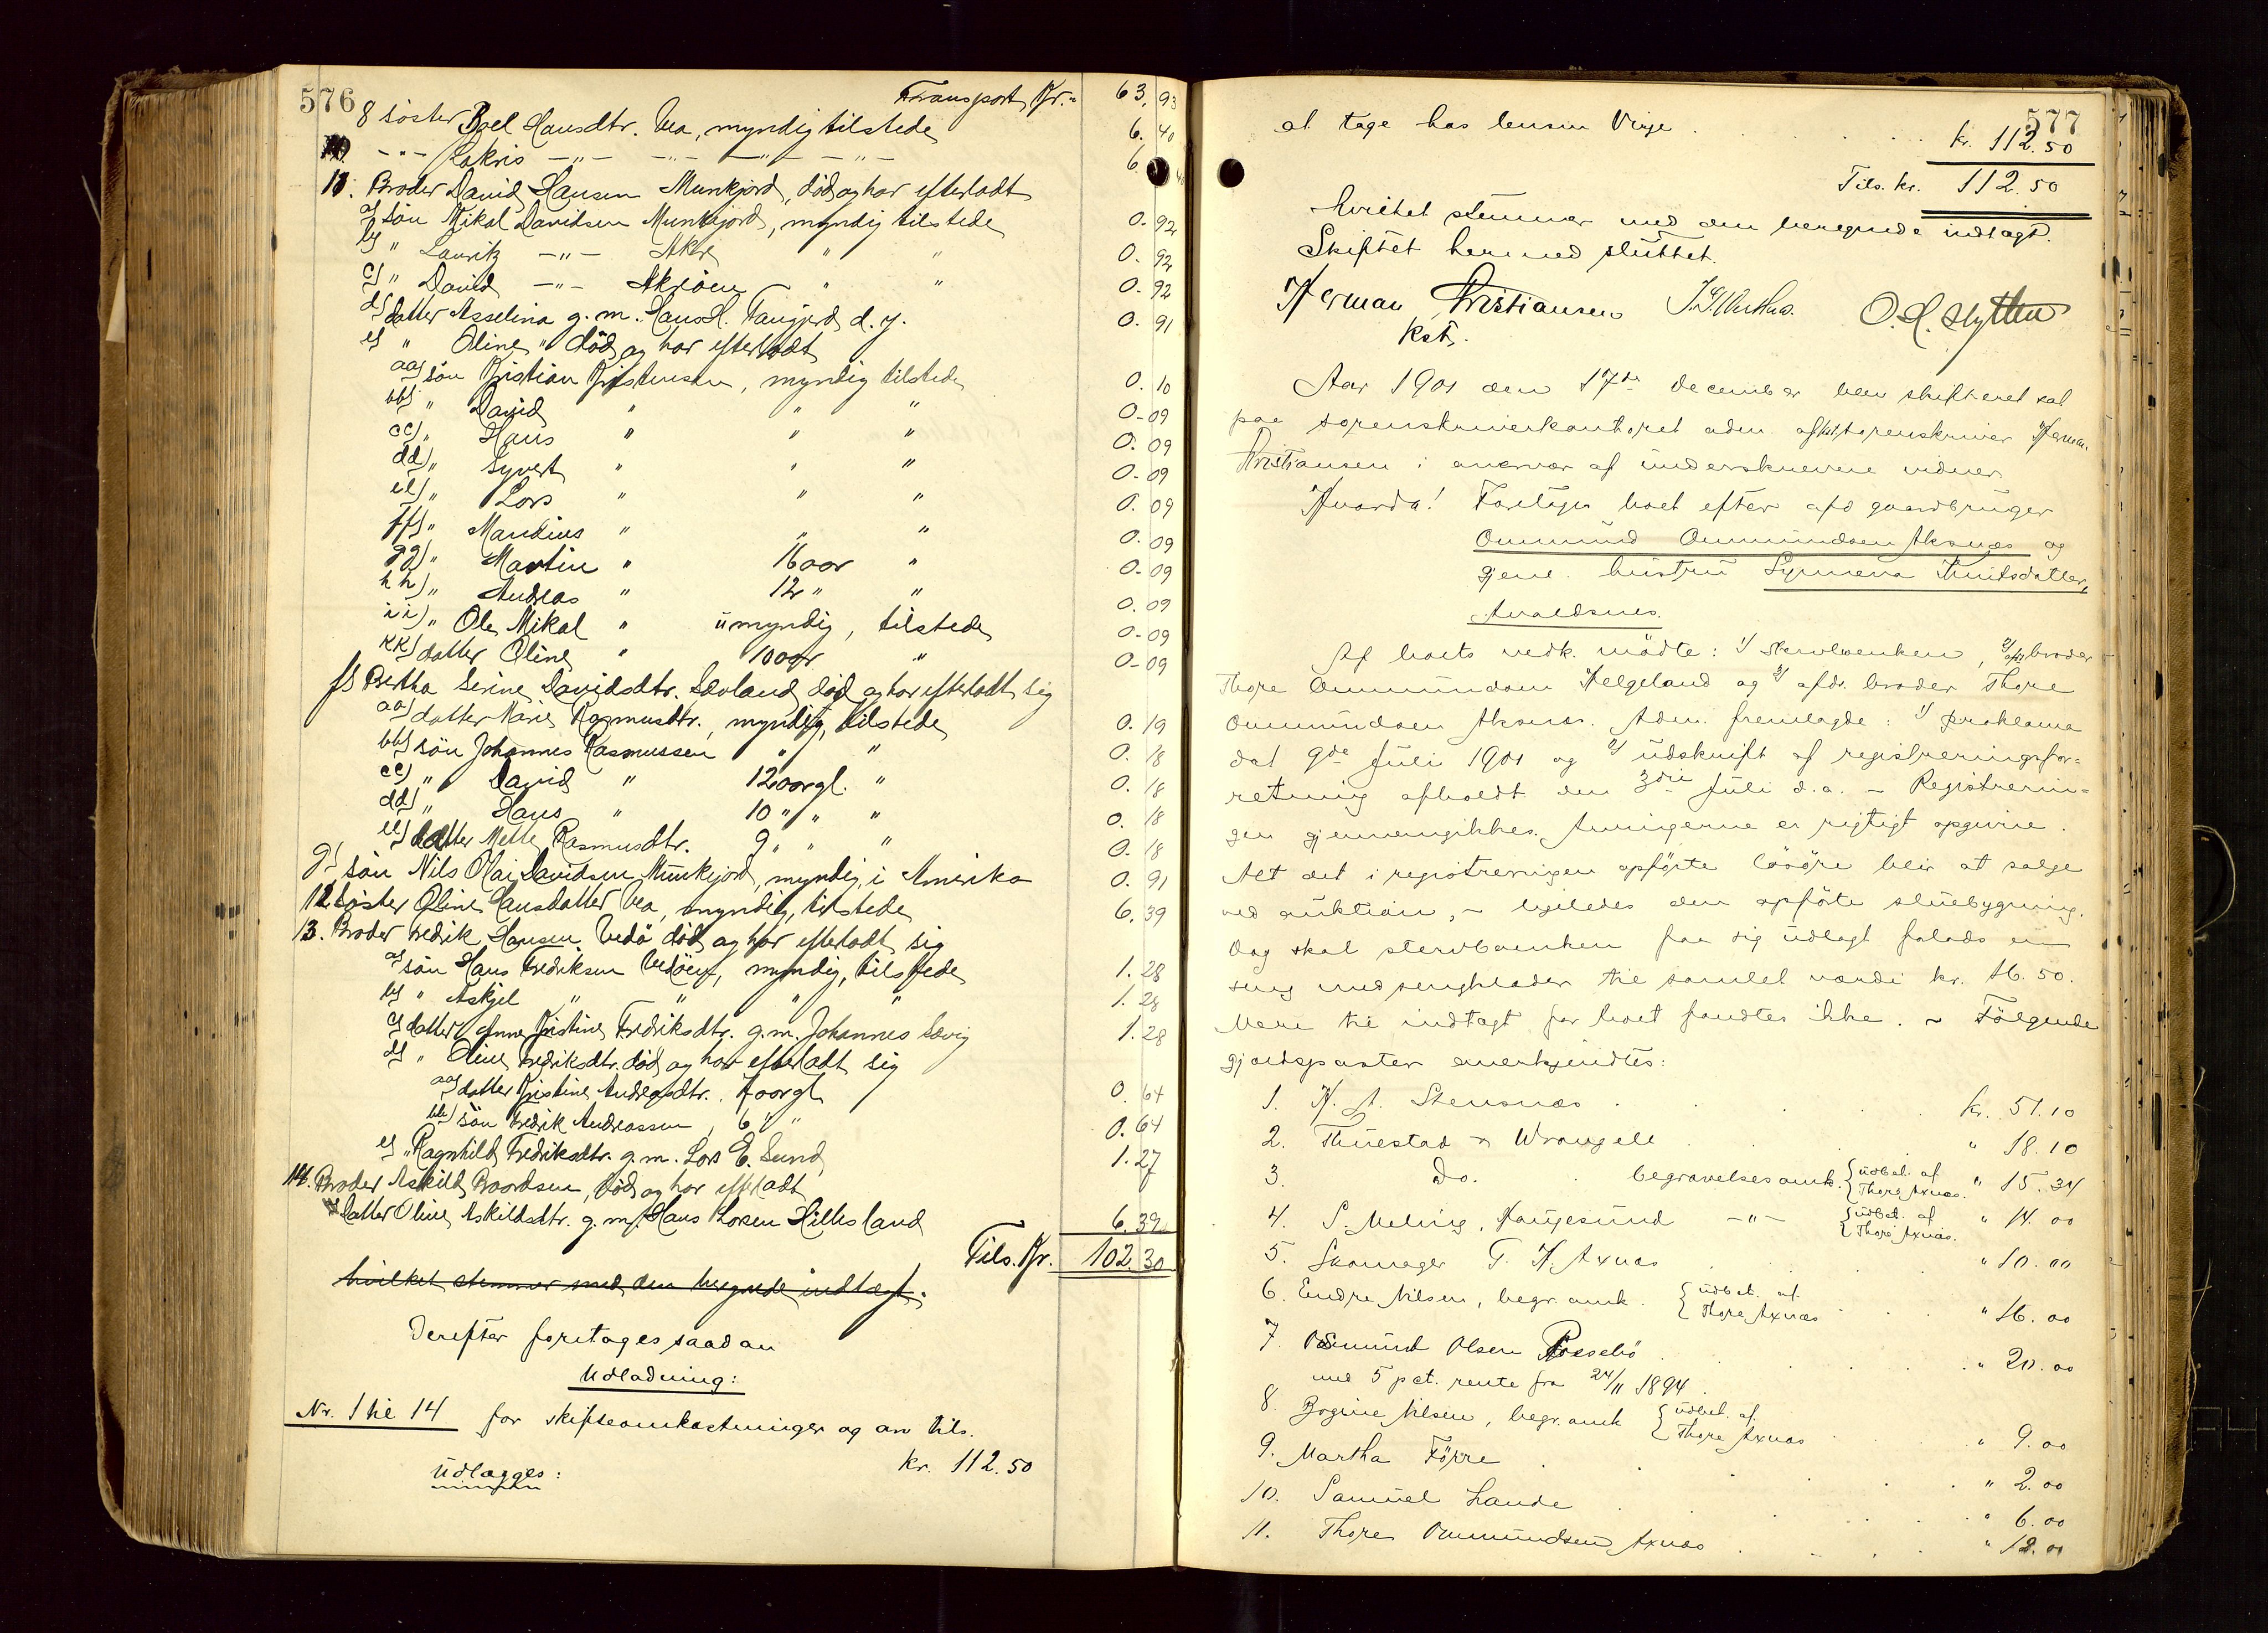 576
Transport Kr. 63,93
8 söster Boel Hansdtr. Vea, myndig tilstede 6.40
10. -"- Lakris -"- -"- -"- -"- 6.
11. Broder David Hansen Munkjord, död og har efterladt
a) sön Mikal Davidsen Munkejord, myndig tilstede 0.92
b) " Lauritz -"- Akre " " 0.92
c) " David -"- Akröen " " 0.92
d) datter Asselina g.m. Hans H. d.y. 0.91
e) " Oline " död og har efterladt
aa) sön Kristian Kristensen, myndig tilstede 0.10
bb) " David " " " 0.09
cc) " Hans " " " 0.09
dd) " Syvert " " " 0.09
ee) " Lars " " " 0.09
ff) " Mandius " " " 0.09
gg) " Martin " 16 aar " 0.09
hh) " Andreas " 12 " " 0.09
ii) " Ole Mikal " umyndig, tilstede 0.09
kk) datter Oline " 10 aar " 0.09
f) Bertha Serine Davidsdtr. Sævland död og har efterladt sig
aa) datter Marie Rasmusdtr., myndig, tilstede 0.19
bb) sön Johannes Rasmussen " " 0.18
cc) " David " 12 aar gl. " 0.18
dd) " Hans " 10 " " " 0.18
ee) datter Mette Rasmusdtr. 9 " " " 0.18
g) sön Nils Olai Davidsen Munkejord, myndig, i Amerika 0.91
12. söster Oline Hansdatter Vea, myndig, tilstede 6.39
13. Broder Fredrik Hansen Vedö död og har efterladt sig
a) sön Hans Fredriksen Vedöen, myndig, tilstede 1.28
b) " Askjel " " " " 1.28
c) datter Anne Kristine Fredriksdtr. g.m. Johannes Sævig 1.28
d) " Oline Fredriksdtr. död og har efterladt sig
aa) datter Kristine Andreasdtr. 7 aar gl. 0.64
bb) sön Fredrik Andreassen, 6 " " 0.64
e) " Ragnhild Fredriksdtr. g.m. Lars E. Sund 1.27
14. Broder Askild Baardsen, död og har efterladt
datter Oline Askildsdtr. g.m. Hans Larsen Hillesland 6.39
Tils. Kr. 102.30
hvilket stemmer med den beregnede indtægt.
Derefter foretages saadan
Udladning:
Nr. 1 til 14 for skifteomkostninger og arv tils.
kr. 112.50
Udlægges:
577
at tage hos lensm Veije kr. 112.50
Tils. kr. 112.50
hvilket stemmer med den beregnede indtægt.
Skiftet hermed sluttet.
Herman Kristiansen O. H. Hytten
kst.
Aar 1901 den 17de december blev skifteret sat
paa sorenskriverkontoret adm. af kst. sorenskriver Herman
Kristiansen i overvær af underskrevne vidner
Hvorda! Foretoges boet efter afd gaardbruger
Ommund Ommundsen Aksnæs og
gjenl. hustru Synneva Knutsdatter,
Avaldsnes.
Af boets vedk. mödte: 1) stervboenken, 2) afd. broder
Thore Ommundsen Helgeland og 3) afdr. broder Thore
Ommundsen Aksnæs. Adm. fremlagde: 1) proklama
dat 9de Juli 1901 og 2) udskrift af registreringsfor=
retning afholdt den 3die Juli d.a. – Registrerin=
gen gjennemgikkes. Arvingerne er rigtigt opgivne.
Alt det i registreringen opførte løsøre blir at sælge
ved auktion, – ligeledes den opförte stuebygning.
Dog skal stervboenken faa sig udlagt forlods en
seng med sengklæder til samlet værdi kr. 16.50.
Mere til indtægt for boet fandtes ikke. – Fölgende
gjældsposter anerkjendtes:
1. H. A. Stensnæs kr. 51.10
2. Thuestad & Wrangell " 18.10
3. Do. begravelsesomk. {udbet. af Thore Axnæs. " 15.34
4. S. Meling, Haugesund -"- {udbet. af Thore Axnæs. " 14.00
5. Skomager T. H. Axnæs " 10.00
6. Endre Nilsen, begr. omk. {udbet. af Thore Axnæs " 16.00
7. Osmund Olsen Røssebö " 20.00
med 5 pct. rente fra 24/11 1894.
8. Bogine Nilsen, begr. omk {udbet. af Thore Axnæs " 9.00
9. Martha Förre " 2.00
10. Samuel Lande " 6.00
11. Thore Ommundsen Axnæs " 12.00